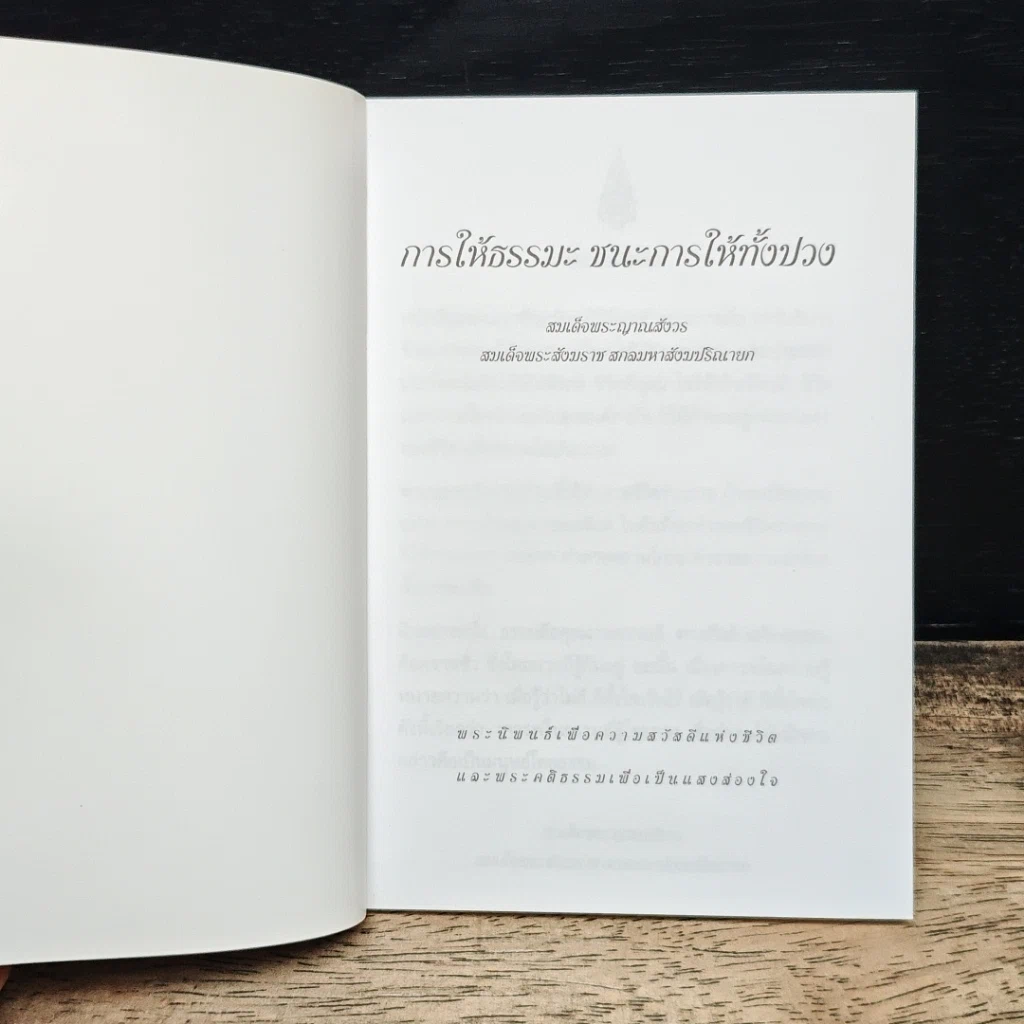 การให้ธรรมะ ชนะการให้ทั้งปวง
สมเด็จพระญาณสังวร
สมเด็จพระสังฆราช สกลมหาสังฆปริณายก
พระนิพนธ์เพื่อความสวัสดีแห่งชีวิต
และพระคติธรรมเพื่อเป็นแสงส่องใจ